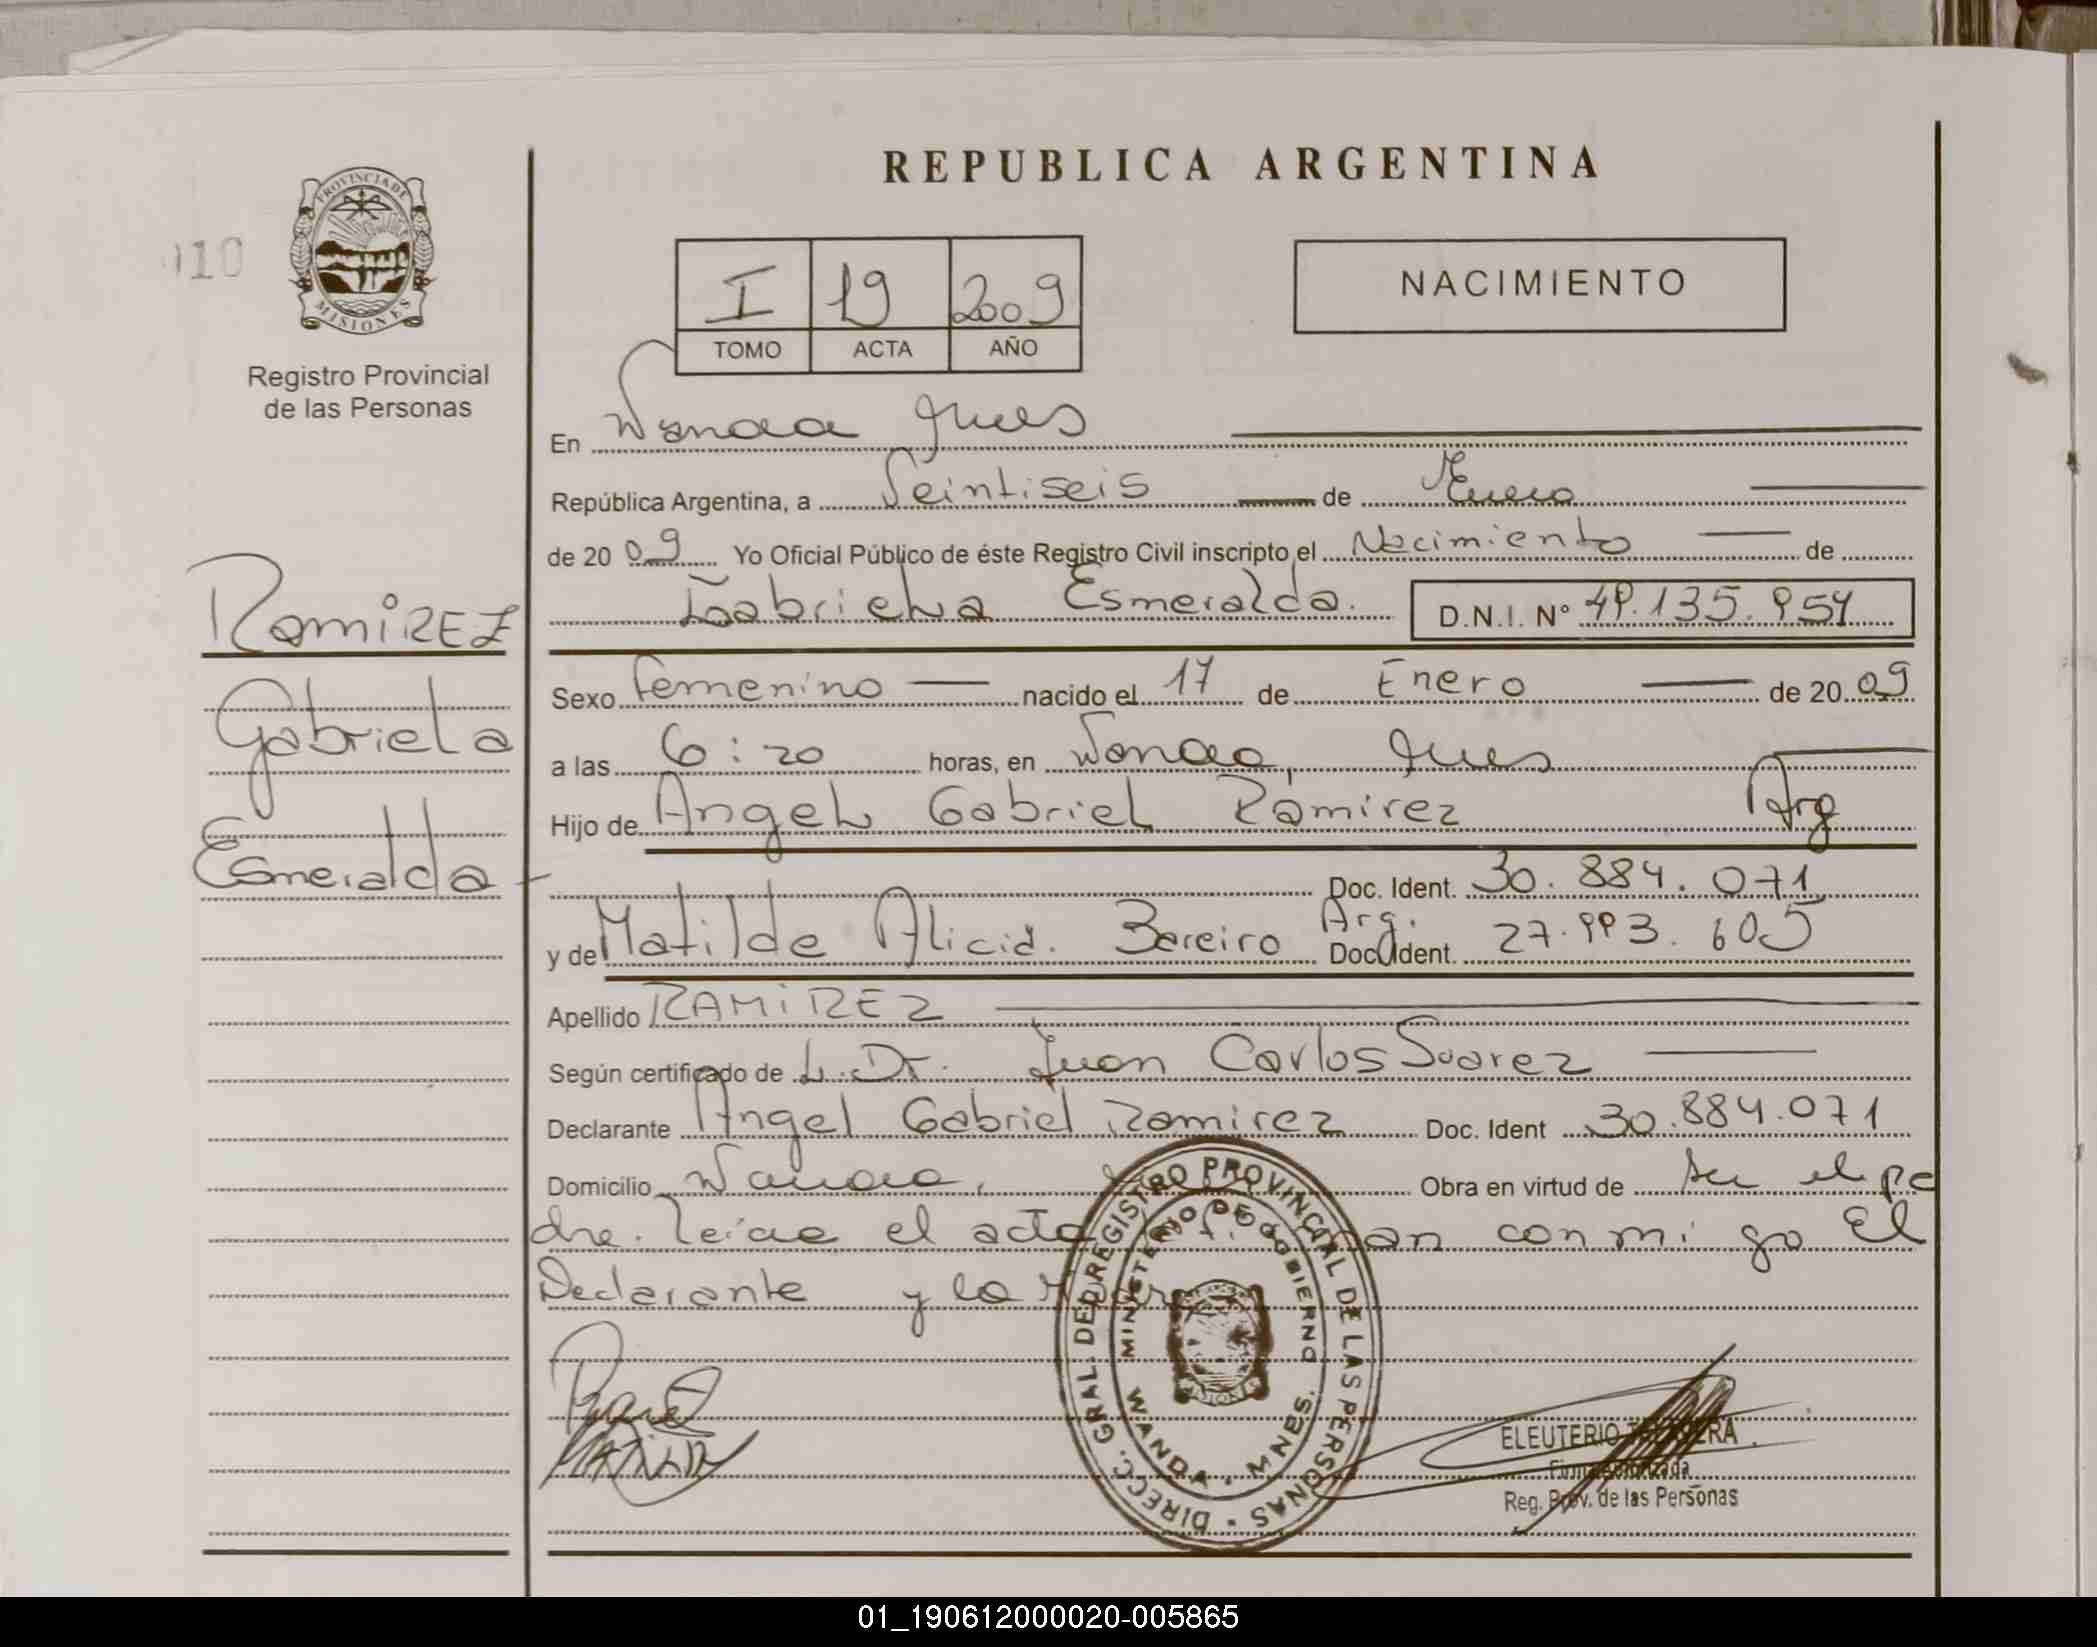 REPUBLICA ARGENTINA
PROVINCIA DE
MISIONES
110
Registro Provincial
de las Personas
I 19 2009
TOMO ACTA AÑO
NACIMIENTO
En Wanda Mnes
República Argentina, a Veintiseis de Enero
de 20 09 Yo Oficial Público de éste Registro Civil inscripto el Nacimiento de
Gabriela Esmeralda. D.N.I. Nº 49.135.954
RamiREZ
Gabriela
Esmeralda
Sexo femenino nacido el 17 de Enero de 20 09
a las 6:20 horas, en Wanda, Mnes
Hijo de Angel Gabriel Ramirez Arg
Doc. Ident. 30.884.071
y de Matilde Alicia. Bareiro Arg. Doc. Ident. 27.993.605
Apellido RAMiREZ
Según certificado de L. Dr. Juan Carlos Suarez
Declarante Angel Gabriel Ramirez Doc. Ident 30.884.071
Domicilio Wanda, Obra en virtud de ser el pa
dre. Leida el acta conmigo El
Declarante y la
DIRECC. GRAL. DEL REGISTRO PROVINCIAL DE LAS PERSONAS
MINISTERIO DE GOBIERNO
WANDA - MNES.
ELEUTERIO
Firma Autorizada
Reg. Prov. de las Personas
01_190612000020-005865